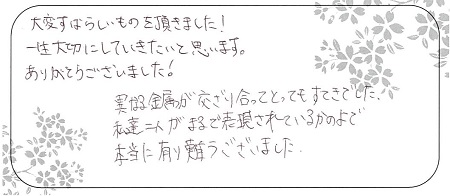 大変すばらしいものを頂きました!
一生大切にしていきたいと思います。
ありがとうございました!
異なる金属が交ざり合ってとってもすてきでした。
私達二人がまるで表現されているかのよで
本当に有り難うございました.